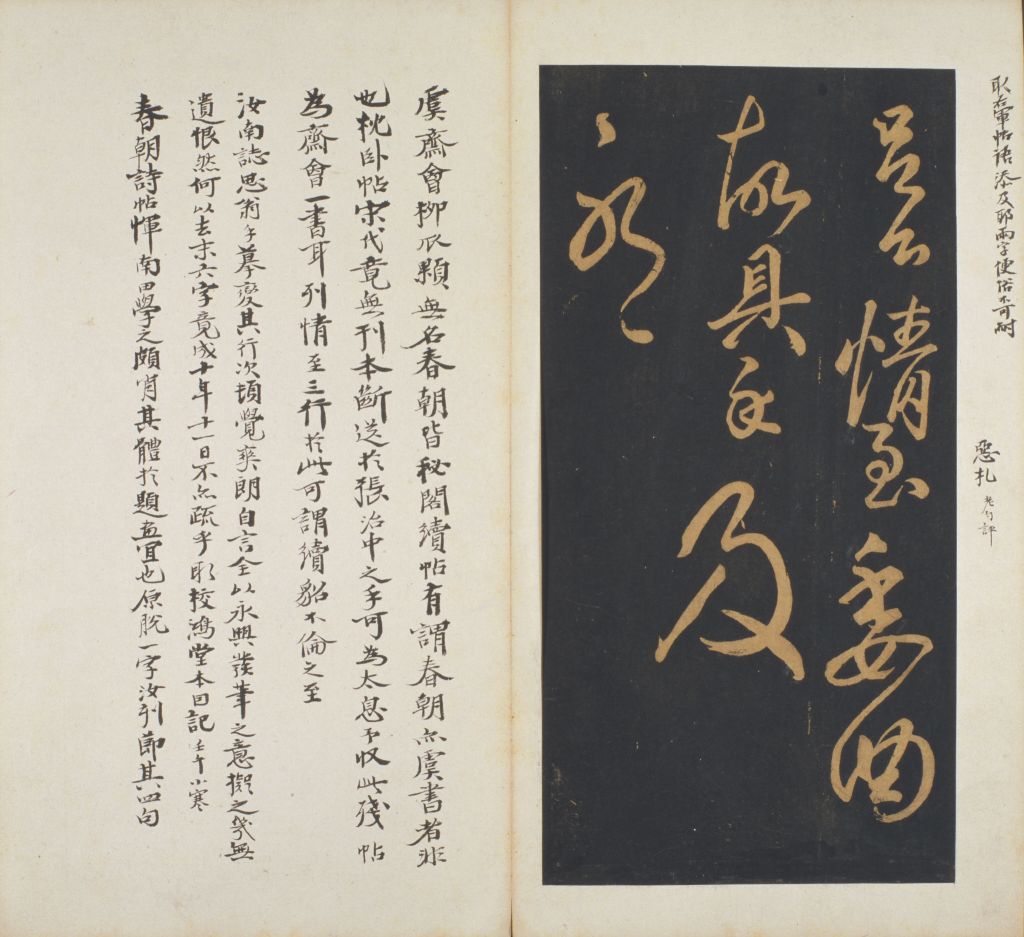 取右軍帖語添及耶兩字便俗不可耐
惡札
老匄評
吾公情至委曲
故具示及
耶
虞齋會柳辰顆無名春朝皆秘閣續帖有謂春朝亦虞書者非
也枕臥帖宋代竟無刊本斷送於張治中之手可為太息予收此殘帖
為齋會一書耳列情至三行於此可謂續貂不倫之至
汝南誌思翁手摹變其行次頓覺爽朗自言全以永興發筆之意擬之幾無
遺恨然何以去末六字竟成十年十一日不亦疏乎耶校鴻堂本因記壬午小寒
春朝詩帖惲南田學之頗肖其體於題畫宜也原脫一字汝刊節其四句